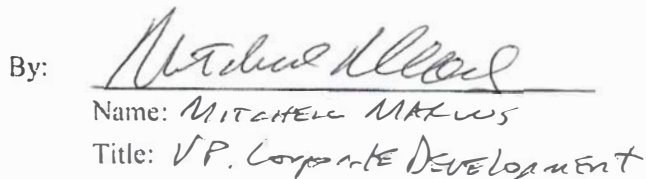 By:
Name: MITCHELL MARCUS
Title: VP. Corporate Development